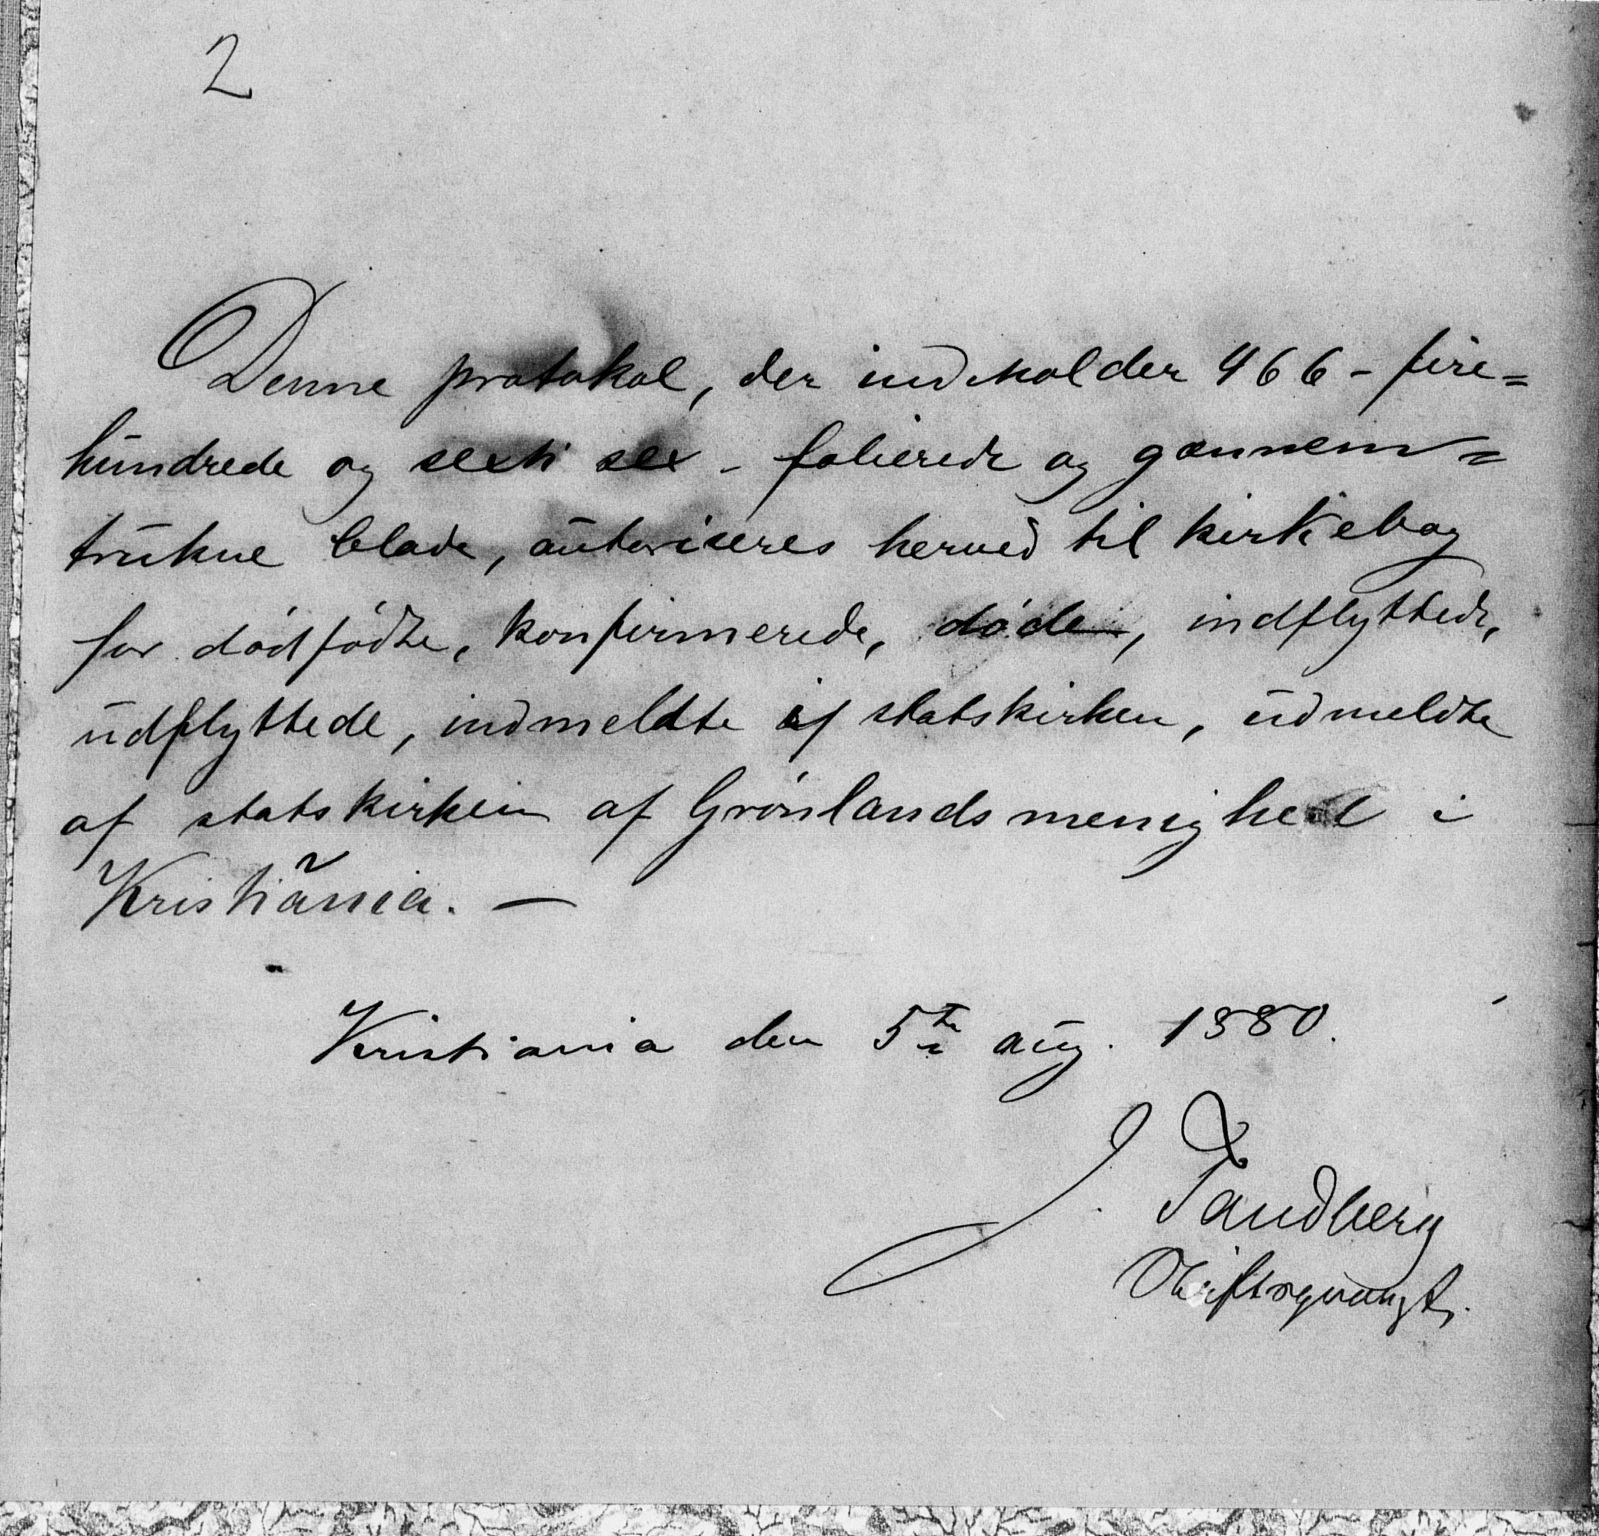 2
Denne protokol, der indeholder 466 - fire=
hundrede og sexti sex - folierede og gjennem=
trukne blade, autoriseres herved til kirkebog
for dødfødte, konfirmerede, døde, indflyttede,
udflyttede, indmeldte i statskirken, udmeldte
af statskirken af Grønlands menighed i
Kristiania. —
Kristiania den 5te aug. 1880.
J. Tandberg